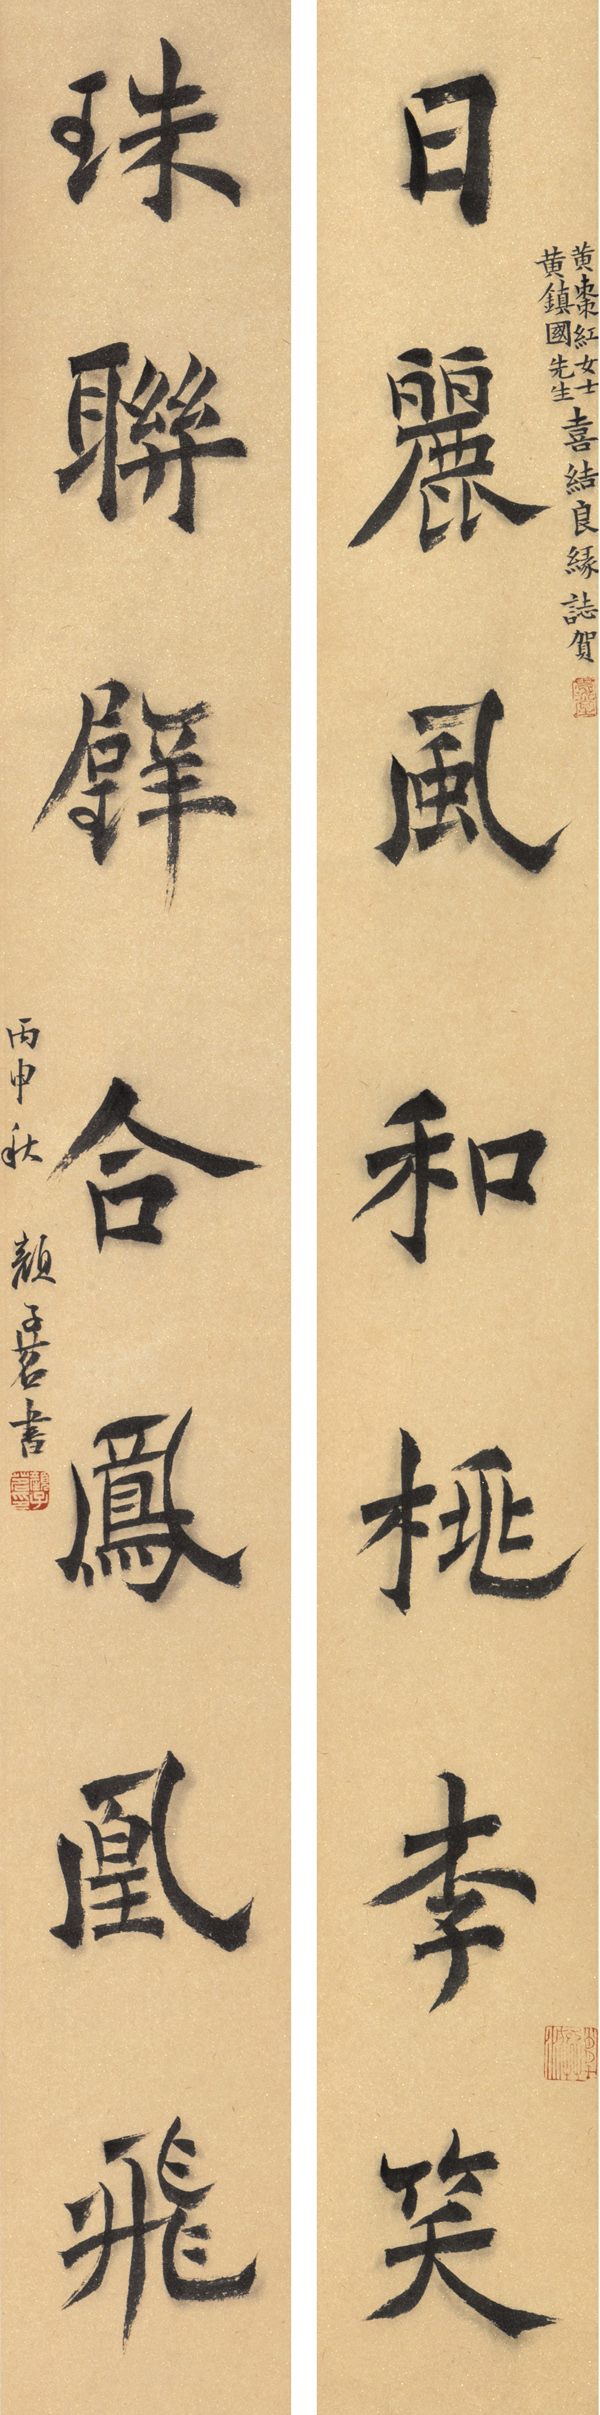 黄棗紅女士
黄鎮國先生
喜結良緣 誌賀
日麗風和桃李笑
珠聯璧合鳳凰飛
丙申秋
顏子茗書